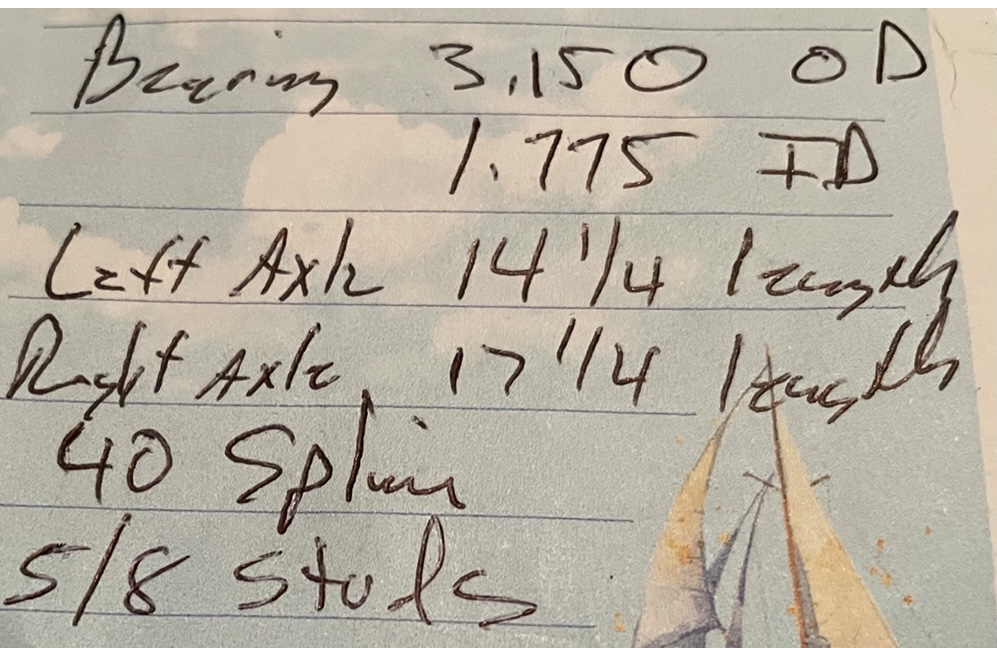 Bearing 3.150 OD
1.775 ID
Left Axle 14 1/4 length
Right Axle 17 1/4 length
40 Spline
5/8 Studs